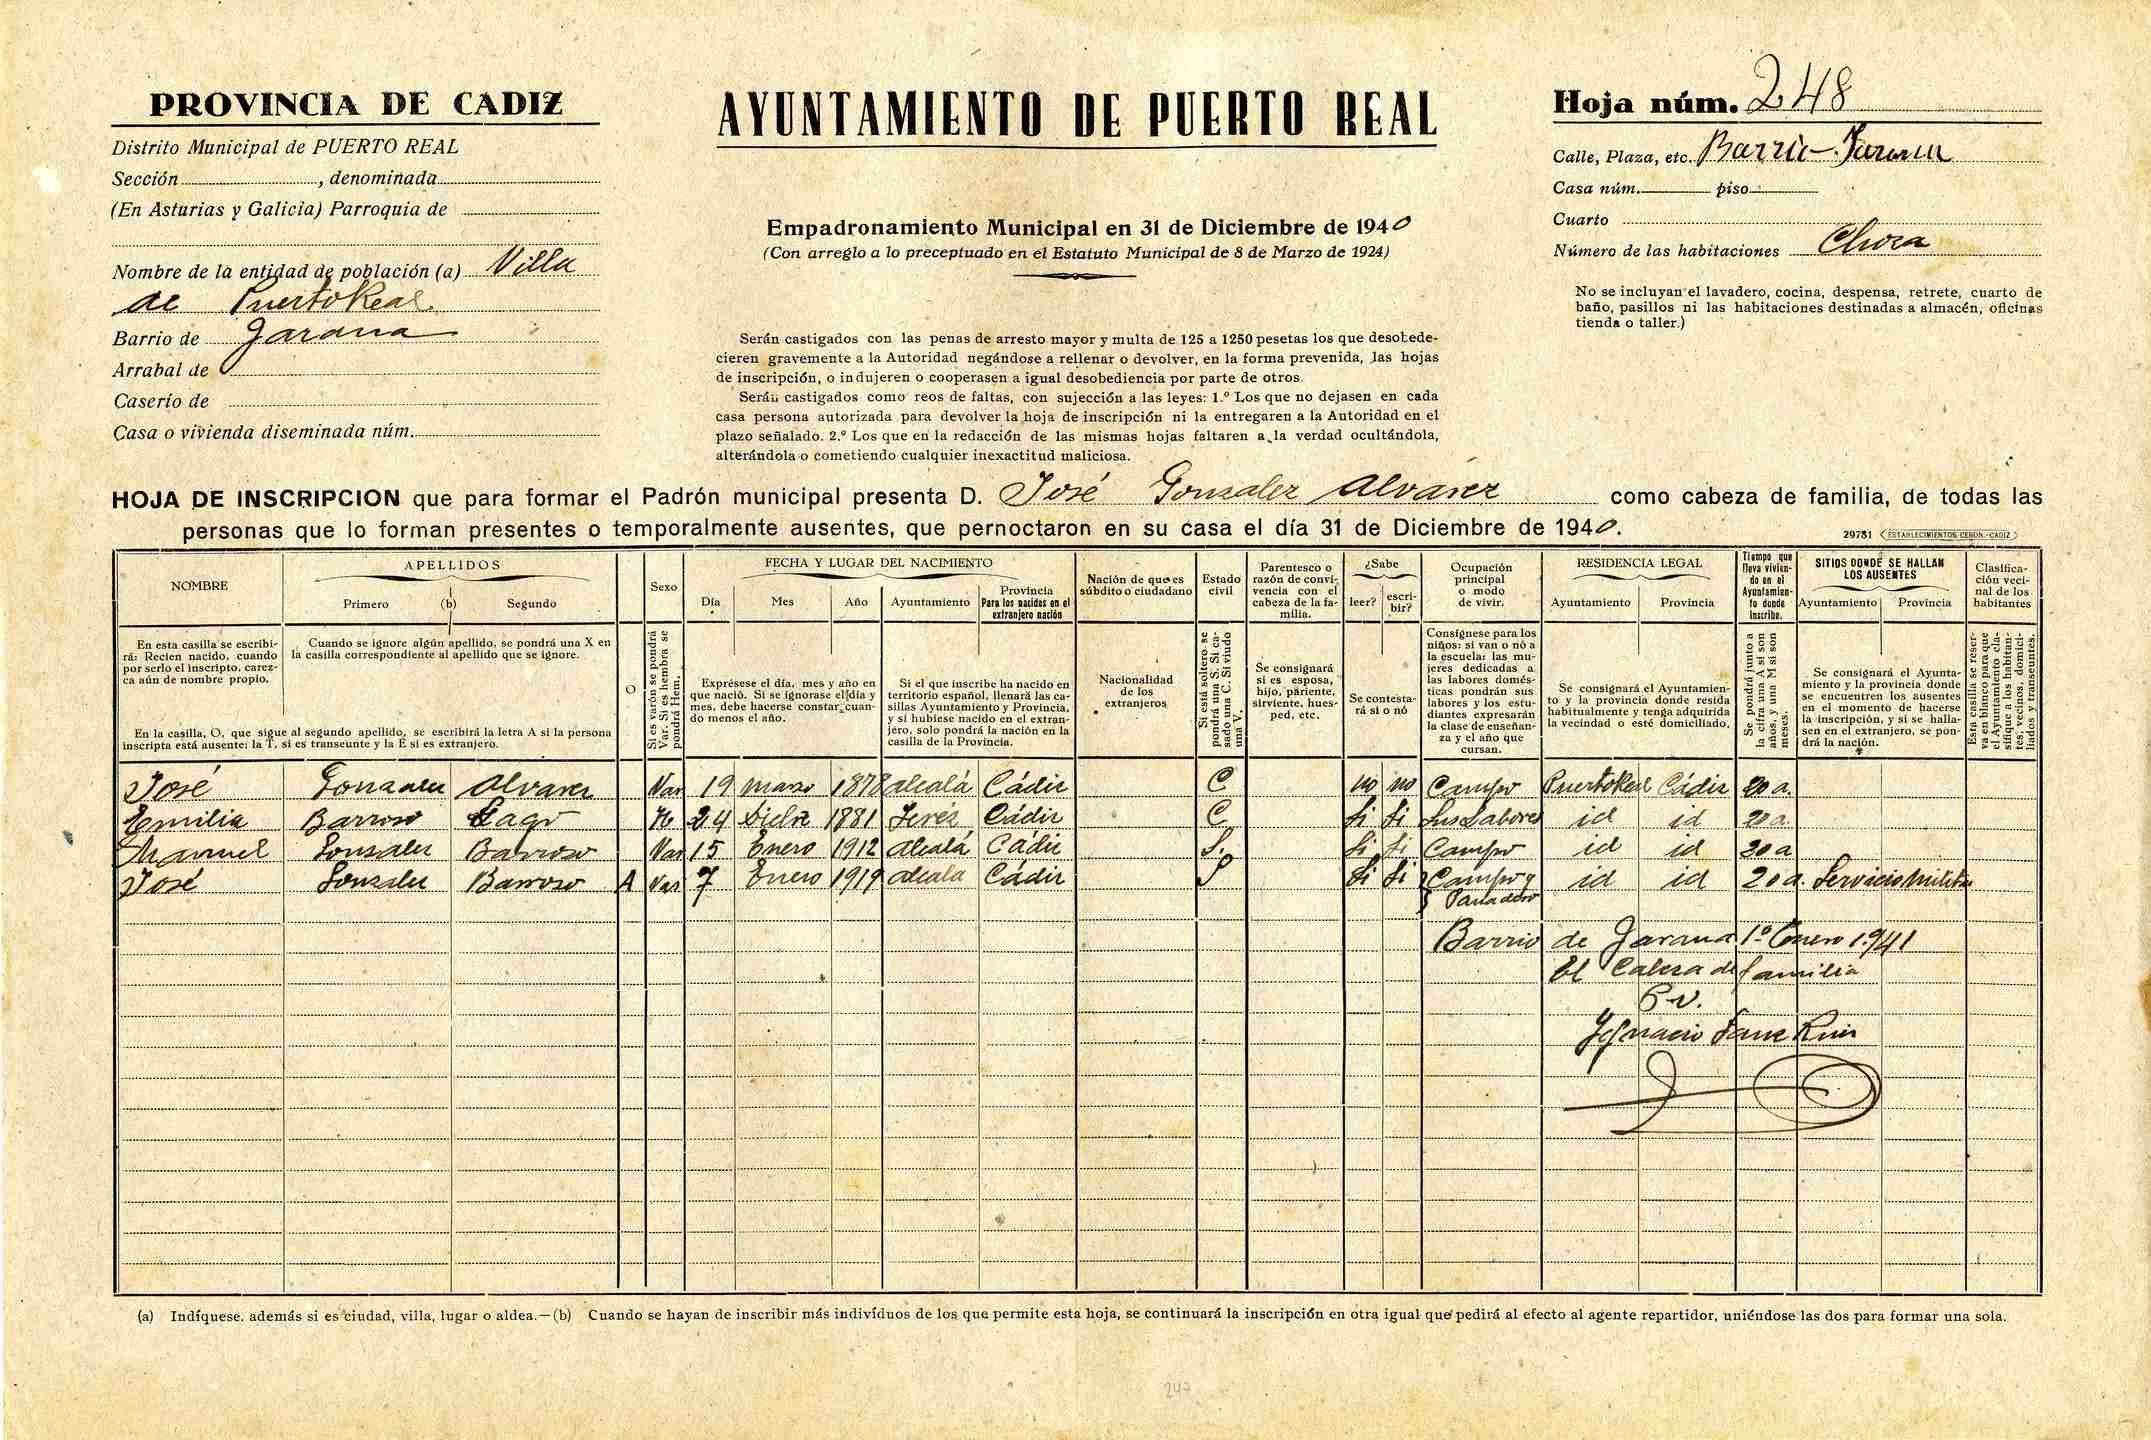 PROVINCIA DE CADIZ
Distrito Municipal de PUERTO REAL
Sección , denominada
(En Asturias y Galicia) Parroquia de
Nombre de la entidad de población (a) Villa
de Puerto Real
Barrio de Jarana
Arrabal de
Caserío de
Casa o vivienda diseminada núm.
AYUNTAMIENTO DE PUERTO REAL
Empadronamiento Municipal en 31 de Diciembre de 1940
(Con arreglo a lo preceptuado en el Estatuto Municipal de 8 de Marzo de 1924)
Serán castigados con las penas de arresto mayor y multa de 125 a 1250 pesetas los que desobede-
cieren gravemente a la Autoridad negándose a rellenar o devolver, en la forma prevenida, las hojas
de inscripción, o indujeren o cooperasen a igual desobediencia por parte de otros.
Serán castigados como reos de faltas, con sujección a las leyes: 1.º Los que no dejasen en cada
casa persona autorizada para devolver la hoja de inscripción ni la entregaren a la Autoridad en el
plazo señalado. 2.º Los que en la redacción de las mismas hojas faltaren a la verdad ocultándola,
alterándola o cometiendo cualquier inexactitud maliciosa.
Hoja núm. 248
Calle, Plaza, etc. Barrio Jarana
Casa núm. piso
Cuarto
Número de las habitaciones Choza
No se incluyan el lavadero, cocina, despensa, retrete, cuarto de
baño, pasillos ni las habitaciones destinadas a almacén, oficinas
tienda o taller.)
HOJA DE INSCRIPCION que para formar el Padrón municipal presenta D. José Gonzalez Alvarez como cabeza de familia, de todas las
personas que lo forman presentes o temporalmente ausentes, que pernoctaron en su casa el día 31 de Diciembre de 1940.
29781 ESTABLECIMIENTOS CERON.-CADIZ
NOMBRE
APELLIDOS
Primero (b) Segundo
Sexo
FECHA Y LUGAR DEL NACIMIENTO
Día Mes Año Ayuntamiento
Provincia
Para los nacidos en el
extranjero nación
Nación de que es
súbdito o ciudadano
Estado
civil
Parentesco o
razón de convi-
vencia con el
cabeza de la fa-
milia.
¿Sabe
leer? escri-
bir?
Ocupación
principal
o modo
de vivir.
RESIDENCIA LEGAL
Ayuntamiento Provincia
Tiempo que
lleva vivien-
do en el
Ayuntamien-
to donde
inscribe.
SITIOS DONDE SE HALLAN
LOS AUSENTES
Ayuntamiento Provincia
Clasifica-
ción veci-
nal de los
habitantes
En esta casilla se escribi-
rá: Recien nacido, cuando
por serlo el inscripto, carez-
ca aún de nombre propio.
Cuando se ignore algún apellido, se pondrá una X en
la casilla correspondiente al apellido que se ignore.
En la casilla, O, que sigue al segundo apellido, se escribirá la letra A si la persona
inscripta está ausente: la T, si es transeunte y la E si es extranjero.
O
Si es varón se pondrá
Var. Si es hembra se
pondrá Hem.
Exprésese el día, mes y año en
que nació. Si se ignorase el día y
mes, debe hacerse constar cuan-
do menos el año.
Si el que inscribe ha nacido en
territorio español, llenará las ca-
sillas Ayuntamiento y Provincia,
y si hubiese nacido en el extran-
jero, solo pondrá la nación en la
casilla de la Provincia.
Nacionalidad
de los
extranjeros
Si está soltero se
pondrá una S. Si ca-
sado una C. Si viudo
una V.
Se consignará
si es esposa,
hijo, pariente,
sirviente, hues-
ped, etc.
Se contesta-
rá si o nó
Consígnese para los
niños: si van o nó a
la escuela: las mu-
jeres dedicadas a
las labores domés-
ticas pondrán sus
labores y los estu-
diantes expresarán
la clase de enseñan-
za y el año que
cursan.
Se consignará el Ayuntamien-
to y la provincia donde resida
habitualmente y tenga adquirida
la vecindad o esté domiciliado.
Se pondrá junto a
la cifra una A si son
años, y una M si son
meses.
Se consignará el Ayunta-
miento y la provincia donde
se encuentren los ausentes
en el momento de hacerse
la inscripción, y si se halla-
sen en el extranjero, se pon-
drá la nación.
Esta casilla se reser-
va en blanco para que
el Ayuntamiento cla-
sifique a los habitan-
tes; vecinos, domici-
liados y transeuntes.
José Gonzalez Alvarez Var 19 marzo 1878 alcalá Cádiz C no no Campo Puerto Real Cádiz 20 a.
Emilia Barroso Gago H 24 Dicbre 1881 Jeréz Cádiz C Si Si Sus Labores id id 20 a.
Manuel Gonzalez Barroso Var 15 Enero 1912 Alcalá Cádiz S. Si Si Campo id id 20 a
José Gonzalez Barroso A Var 7 Enero 1919 alcala Cádiz S Si Si Campo y id id 20 a. Servicio Militar
Panadero
Barrio de Jarana 1º Enero 1.941
El Cabeza de familia
Ignacio Sanz Ruiz
(a) Indíquese. además si es ciudad, villa, lugar o aldea.—(b) Cuando se hayan de inscribir más indivíduos de los que permite esta hoja, se continuará la inscripción en otra igual que pedirá al efecto al agente repartidor, uniéndose las dos para formar una sola.
247